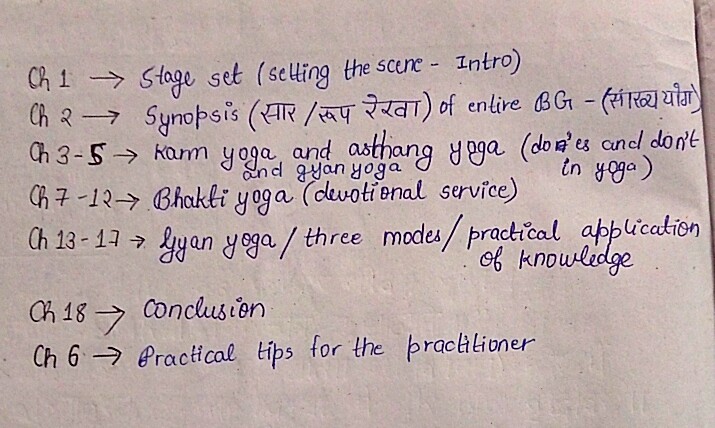 Ch 1 → Stage set (setting the scene - Intro)
Ch 2 → Synopsis (सार / रूप रेखा) of entire BG - (सांख्य योग)
Ch 3-5 → Karm yoga and asthang yoga (do's and don't
and gyan yoga in yoga)
Ch 7-12 → Bhakti yoga (devotional service)
Ch 13-17 → Gyan yoga / three modes / practical application
of knowledge
Ch 18 → Conclusion
Ch 6 → Practical tips for the practitioner